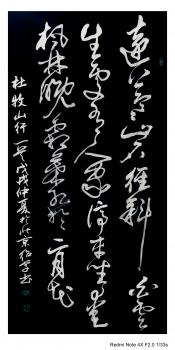 遠上寒山石徑斜白雲
生處有人家停車坐愛
楓林晚霜葉紅於二月花
杜牧山行 戊戌仲夏於北京
Redmi Note 4X F2.0 1/33s